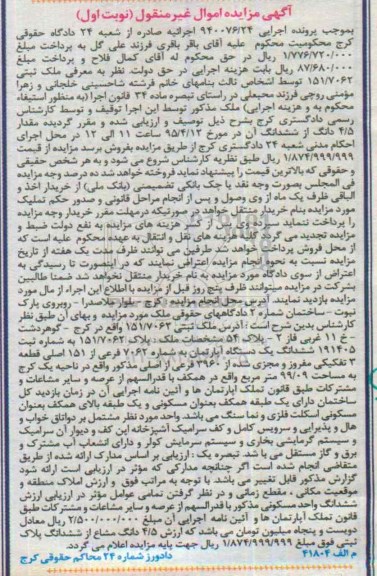 آگهی مزایده اموال غیرمنقول (نوبت اول)
بموجب پرونده اجرایی ۹۴۰۰۷۶/۲۴ اجرائیه صادره از شعبه ۲۴ دادگاه حقوقی
کرج محکومیت محکوم علیه آقای باقر باقری فرزند علی گل به پرداخت مبلغ
۱/۷۷۶/۷۲۰/۰۰۰ ریال در حق محکوم له آقای کمال فلاح و پرداخت مبلغ
۸۷/۶۸۰/۰۰۰ ریال بابت هزینه اجرایی در حق دولت. نظر به معرفی ملک ثبتی
۱۵۱/۷۰۶۲ توسط اشخاص ثالث بنامهای خانم فرشته شاحسینی خلجانی و زهرا
مؤمنی روجی فرزند محبعلی در راستای تبصره ماده ۳۴ قانون اجرا (به منظور استیفاء
محکوم به و هزینه اجرایی) ملک مذکور توسط این اجرا توقیف و توسط کارشناس
رسمی دادگستری کرج بشرح ذیل توصیف و ارزیابی شده و مقرر گردیده مقدار
۴/۵ دانگ از ششدانگ آن در مورخ ۹۵/۴/۱۲ ساعت ۱۱ الی ۱۲ در محل اجرای
احکام مدنی شعبه ۲۴ دادگستری کرج از طریق مزایده بفروش برسد مزایده از قیمت
۱/۸۷۴/۹۹۹/۹۹۹ ریال طبق نظریه کارشناس شروع می شود و به هر شخص حقیقی
و حقوقی که بالاترین قیمت را پیشنهاد نماید فروخته خواهد شد ده درصد وجه مزایده
فی المجلس بصورت وجه نقد یا چک بانکی تضمینی (بانک ملی) از خریدار اخذ و
الباقی ظرف یک ماه از وی وصول و پس از انجام مراحل قانونی و صدور حکم تملیک
مورد مزایده بنام خریدار منتقل خواهد در صورتیکه درمهلت مقرر خریدار وجه مزایده
را پرداخت ننماید سپرده وی پس از کسر هزینه های مزایده به نفع دولت ضبط و
مزایده تجدید می گردد کلیه هزینه های نقل و انتقال به عهده محکوم علیه است که
از محل فروش پرداخت خواهد شد طرفین می توانند ظرف مدت یک هفته از تاریخ
مزایده نسبت به نحوه انجام مزایده اعتراض نمایند که در اینصورت تا رسیدگی به
اعتراض از سوی دادگاه مورد مزایده به نام خریدار منتقل نخواهد شد ضمنا طالبین
شرکت در مزایده میتوانند ظرف پنج روز قبل از مزایده با اطلاع این اجراء از مال مورد
مزایده بازدید نمایند. آدرس محل انجام مزایده کرج - بلوار ملاصدرا - روبروی پارک
نبوت - ساختمان شماره ۲ دادگاههای حقوقی ملک مورد مزایده و بهای آن طبق نظر
کارشناس بدین شرح است: آدرس ملک ثبتی ۱۵۱/۷۰۶۲ واقع در کرج - گوهردشت
- خ ۱۱ غربی فاز ۲ - پلاک ۵۴ مشخصات ملک: پلاک ۱۵۱/۷۰۶۲ به شماره ثبت
۱۹۱۴۰۵ ششدانگ یک دستگاه آپارتمان به شماره ۷۰۶۲ فرعی از ۱۵۱ اصلی قطعه
۳ تفکیکی مفروز و مجزی شده از ۳۹۶۰ فرعی از اصلی مذکور واقع در ناحیه یک کرج
به مساحت ۹۹/۰۹ متر مربع واقع در همکف با قدرالسهم از عرصه و سایر مشاعات و
مشترکات طبق قانون تملک آپارتمان ها و آئین نامه اجرایی آن در زمان بازدید کل
ساختمان دارای یک طبقه همکف بعنوان مسکونی و یک طبقه بالای همکف بعنوان
مسکونی اسکلت فلزی و نما سنگ می باشد. واحد مورد نظر مشتمل بر دواتاق خواب و
هال و پذیرایی و سرویس کامل و کف سرامیک آشپزخانه اپن کف و دیوار آن سرامیک
و سیستم گرمایشی بخاری و سیستم سرمایش کولر و دارای انشعاب آب مشترک و
برق و گاز مستقل می با شد. تبصره یک : ارزیابی بر اساس مدارک ارائه شده از طریق
متقاضی انجام شده است اگر چنانچه مدارکی که مؤثر در ارزیابی است ارائه شود
گزارش مذکور قابل تغییر می باشد. با توجه به مراتب فوق و ارزش املاک منطقه و
موقعیت مکانی ، مقطع زمانی و در نظر گرفتن تمامی عوامل مؤثر در ارزیابی ارزش
ششدانگ واحد مسکونی مذکور با قدرالسهم از عرصه و سایر مشاعات و مشترکات طبق
قانون تملک آپارتمان ها و آئین نامه اجرایی آن مبلغ ۲/۵۰۰/۰۰۰/۰۰۰ ریال معادل
دویست و پنجاه میلیون تومان می باشد که ارزش ۴/۵ دانگ مشاع از ششدانگ پلاک
ثبتی فوق مبلغ ۱/۸۷۴/۹۹۹/۹۹۹ ریال جهت پایه مزایده اعلام می گردد.
م الف ۴۱۸۰۴ دادورز شماره ۲۴ محاکم حقوقی کرج